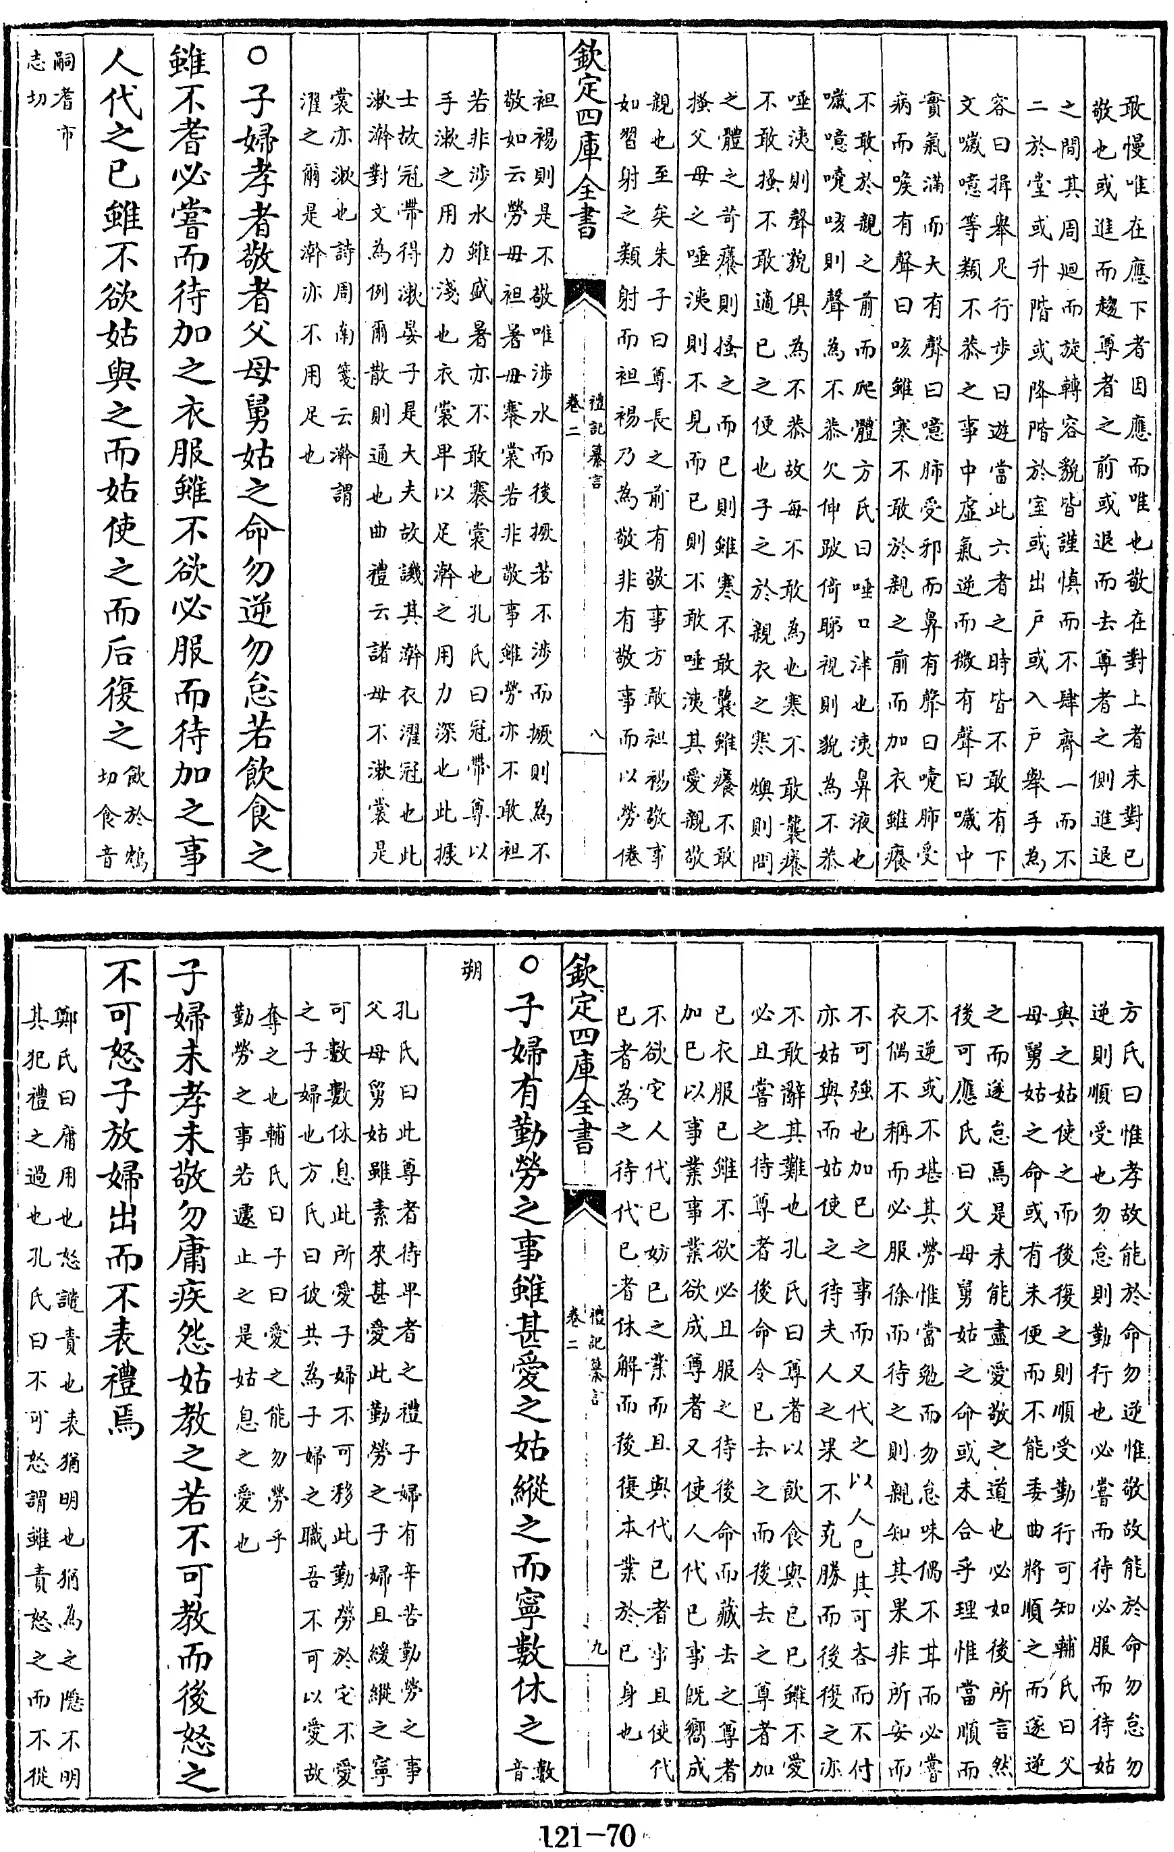 敢慢唯在應下者因應而唯也敬在對上者未對已
敬也或進而趨尊者之前或退而去尊者之側進退
之間其周迴而旋轉容貌皆謹慎而不肆齊一而不
二於堂或升階或降階於室或出戶或入戶舉手為
容曰揖舉凡行步曰遊當此六者之時皆不敢有下
文噦噫等類不恭之事中虛氣逆而微有聲曰噦中
實氣滿而大有聲曰噫肺受邪而鼻有聲曰嚏肺受
病而喉有聲曰咳雖寒不敢於親之前而加衣雖癢
不敢於親之前而爬體方氏曰唾口津也洟鼻液也
噦噫嚏咳則聲為不恭欠伸跛倚睇視則貌為不恭
唾洟則聲貌俱為不恭故每不敢為也寒不敢襲癢
不敢搔不敢適已之便也子之於親衣之寒燠則問
之體之苛癢則搔之而已則雖寒不敢襲雖癢不敢
搔父母之唾洟則不見而已則不敢唾洟其愛親敬
親也至矣朱子曰尊長之前有敬事方敢袒裼敬事
如習射之類射而袒裼乃為敬非有敬事而以勞倦
欽定四庫全書
禮記纂言
卷二
八
袒裼則是不敬唯涉水而後撅若不涉而撅則為不
敬如云勞毋袒暑毋褰裳若非敬事雖勞亦不敢袒
若非涉水雖盛暑亦不敢褰裳也孔氏曰冠帶尊以
手漱之用力淺也衣裳卑以足澣之用力深也此據
士故冠帶得漱晏子是大夫故譏其澣衣濯冠也此
漱澣對文為例爾散則通也曲禮云諸母不漱裳是
裳亦漱也詩周南箋云澣謂
濯之爾是澣亦不用足也
○子婦孝者敬者父母舅姑之命勿逆勿怠若飲食之
雖不耆必嘗而待加之衣服雖不欲必服而待加之事
人代之已雖不欲姑與之而姑使之而后復之
飲於鴆
切食音
嗣耆市
志切
方氏曰惟孝故能於命勿逆惟敬故能於命勿怠勿
逆則順受也勿怠則勤行也必嘗而待必服而待姑
與之姑使之而後復之則順受勤行可知輔氏曰父
母舅姑之命或有未便而不能委曲將順之而遂逆
之而遂怠焉是未能盡愛敬之道也必如後所言然
後可應氏曰父母舅姑之命或未合乎理惟當順而
不逆或不堪其勞惟當勉而勿怠味偶不甘而必嘗
衣偶不稱而必服徐而待之則親知其果非所安而
不可強也加已之事而又代之以人已其可吝而不付
亦姑與而姑使之待夫人之果不克勝而後復之亦
不敢辭其難也孔氏曰尊者以飲食與已已雖不愛
必且嘗之待尊者後命令已去之而後去之尊者加
已衣服已雖不欲必且服之待後命而藏去之尊者
加已以事業事業欲成尊者又使人代已事既嚮成
不欲它人代已妨已之業而且與代已者事且使代
已者為之待代已者休解而後復本業於已身也
欽定四庫全書
禮記纂言
卷二
九
○子婦有勤勞之事雖甚愛之姑縱之而寧數休之
數音
朔
孔氏曰此尊者待卑者之禮子婦有辛苦勤勞之事
父母舅姑雖素來甚愛此勤勞之子婦且緩縱之寧
可數數休息此所愛子婦不可移此勤勞於它不愛
之子婦也方氏曰彼其為子婦之職吾不可以愛故
奪之也輔氏曰子曰愛之能勿勞乎
勤勞之事若遽止之是姑息之愛也
子婦未孝未敬勿庸疾怨姑教之若不可教而後怒之
不可怒子放婦出而不表禮焉
鄭氏曰庸用也怒譴責也表猶明也猶為之隱不明
其犯禮之過也孔氏曰不可怒謂雖責怒之而不從
121-70